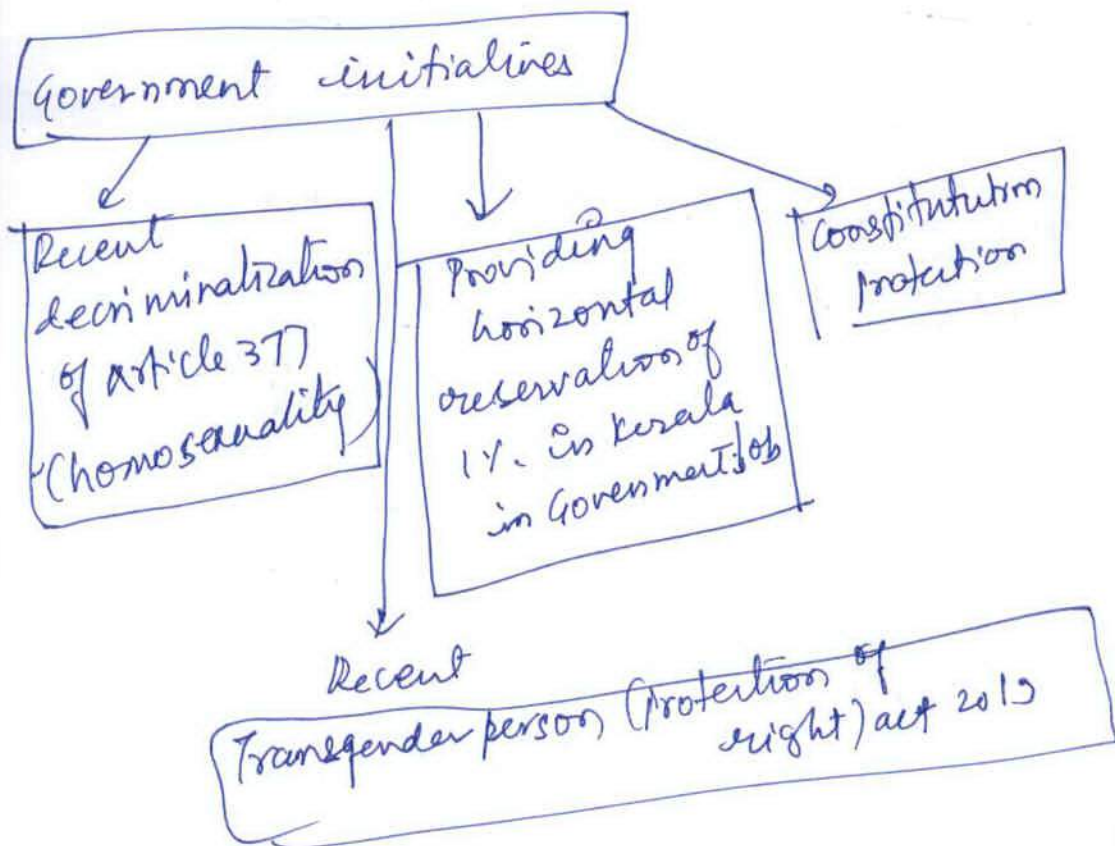 Government initiatives
Recent
decriminalization
of article 377
(homosexuality)
Providing
horizontal
reservation of
1%. in Kerala
in Government job
Constitutution
protection
Recent
Transgender person (Protection of
right) act 2019